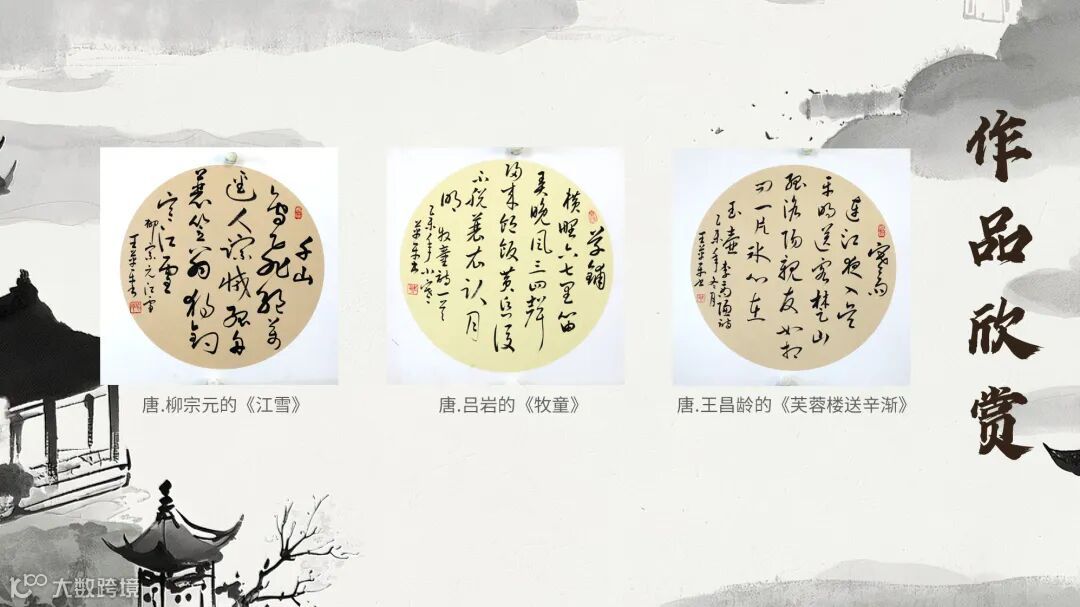 作品欣赏
千山
鸟飞绝万
迳人踪灭孤舟
蓑笠翁独钓
寒江雪
柳宗元江雪
草铺
横野六七里笛
弄晚风三四聲
归来饱饭黄昏後
不脱蓑衣卧月
明 牧童诗一首
乙未年小寒
寒雨
连江夜入吴
平明送客楚山
孤洛阳親友如相
问一片冰心在
玉壶
乙未年冬月
唐.柳宗元的《江雪》
唐.吕岩的《牧童》
唐.王昌龄的《芙蓉楼送辛渐》
大数跨境